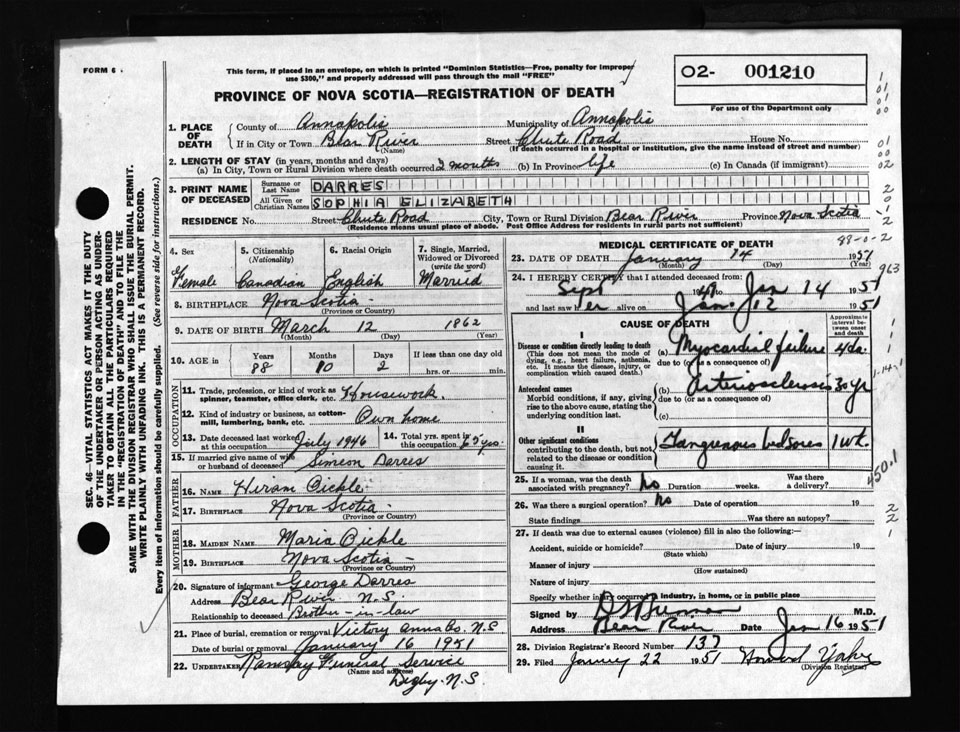 FORM 6
This form, if placed in an envelope, on which is printed "Dominion Statistics—Free, penalty for improper
use $300," and properly addressed will pass through the mail "FREE"
PROVINCE OF NOVA SCOTIA—REGISTRATION OF DEATH
02- 001210
For use of the Department only
1. PLACE OF DEATH { County of Annapolis Municipality of Annapolis
If in City or Town Bear River Street Chute Road House No.
(Name) (If death occurred in a hospital or institution, give the name instead of street and number)
2. LENGTH OF STAY (in years, months and days)
(a) In City, Town or Rural Division where death occurred 2 months (b) In Province life (c) In Canada (if immigrant)
3. PRINT NAME OF DECEASED { Surname or Last Name DARRES
All Given or Christian Names SOPHIA ELIZABETH
RESIDENCE No. Street Chute Road City, Town or Rural Division Bear River Province Nova Scotia
(Residence means usual place of abode. Post Office Address for residents in rural parts not sufficient)
4. Sex Female
5. Citizenship (Nationality) Canadian
6. Racial Origin English
7. Single, Married, Widowed or Divorced (write the word) Married
8. BIRTHPLACE Nova Scotia
(Province or Country)
9. DATE OF BIRTH March 12 1862
(Month) (Day) (Year)
10. AGE in Years 88 Months 10 Days 2 If less than one day old hrs. or min.
OCCUPATION
11. Trade, profession, or kind of work as spinner, teamster, office clerk, etc. Housework.
12. Kind of industry or business, as cotton-mill, lumbering, bank, etc. Own home
13. Date deceased last worked at this occupation July 1946 14. Total yrs. spent in this occupation 65 yrs.
15. If married give name of wife or husband of deceased Simeon Darres
FATHER
16. NAME Hiram Pickle
17. BIRTHPLACE Nova Scotia
(Province or Country)
MOTHER
18. MAIDEN NAME Maria Pickle
19. BIRTHPLACE Nova Scotia
(Province or Country)
20. Signature of informant George Darres
Address Bear River N.S.
Relationship to deceased Brother-in-law
21. Place of burial, cremation or removal Victory Anna Co. N.S.
Date of burial or removal January 16 1951
22. UNDERTAKER Ramsay Funeral Service
(Name and address)
Digby. N.S.
MEDICAL CERTIFICATE OF DEATH
88-0-2
23. DATE OF DEATH January 14 1951
(Month) (Day) (Year)
24. I HEREBY CERTIFY that I attended deceased from:
Sept 19 to Jan 14 1951
and last saw her alive on Jan. 12 1951
CAUSE OF DEATH
Approximate interval between onset and death
I
Disease or condition directly leading to death
(This does not mean the mode of dying, e.g., heart failure, asthenia, etc. It means the disease, injury, or complication which caused death.)
(a) Myocardial failure 4 da.
due to (or as a consequence of)
Antecedent causes
Morbid conditions, if any, giving rise to the above cause, stating the underlying condition last.
(b) Arteriosclerosis 30 yr
due to (or as a consequence of)
(c)
II
Other significant conditions
contributing to the death, but not related to the disease or condition causing it.
Gangrenous bedsores 1 wk.
450.1
25. If a woman, was the death associated with pregnancy? No Duration weeks. Was there a delivery?
26. Was there a surgical operation? No Date of operation 19
State findings Was there an autopsy?
27. If death was due to external causes (violence) fill in also the following:—
Accident, suicide or homicide? Date of injury 19
(State which)
Manner of injury
(How sustained)
Nature of injury
Specify whether injury occurred in industry, in home, or in public place
Signed by M.D.
Address Bear River Date Jan 16 1951
28. Division Registrar's Record Number 137
29. Filed January 22 1951
(Division Registrar)
SEC. 46—VITAL STATISTICS ACT MAKES IT THE DUTY
OF THE UNDERTAKER OR PERSON ACTING AS UNDER-
TAKER TO OBTAIN ALL THE PARTICULARS REQUIRED
IN THE "REGISTRATION OF DEATH" AND TO FILE THE
SAME WITH THE DIVISION REGISTRAR WHO SHALL ISSUE THE BURIAL PERMIT.
WRITE PLAINLY WITH UNFADING INK. THIS IS A PERMANENT RECORD.
Every item of information should be carefully supplied. (See reverse side for instructions.)